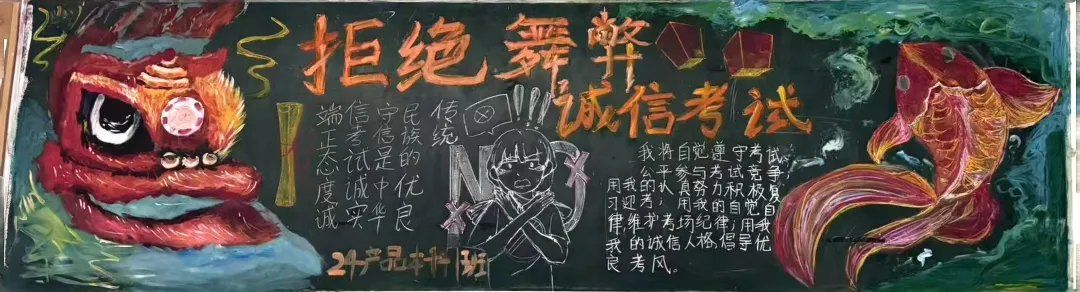 拒绝舞弊
诚信考试
端正态度诚
信考试诚实
守信是中华
民族的优良
传统
NO
我将自觉遵守考试
公平参与考试竞争
用我的认真努力积极复
习迎考;用我的自觉自
律,维护考场纪律;用我
我的诚信人格,倡导优
良考风。
24产品本 1班